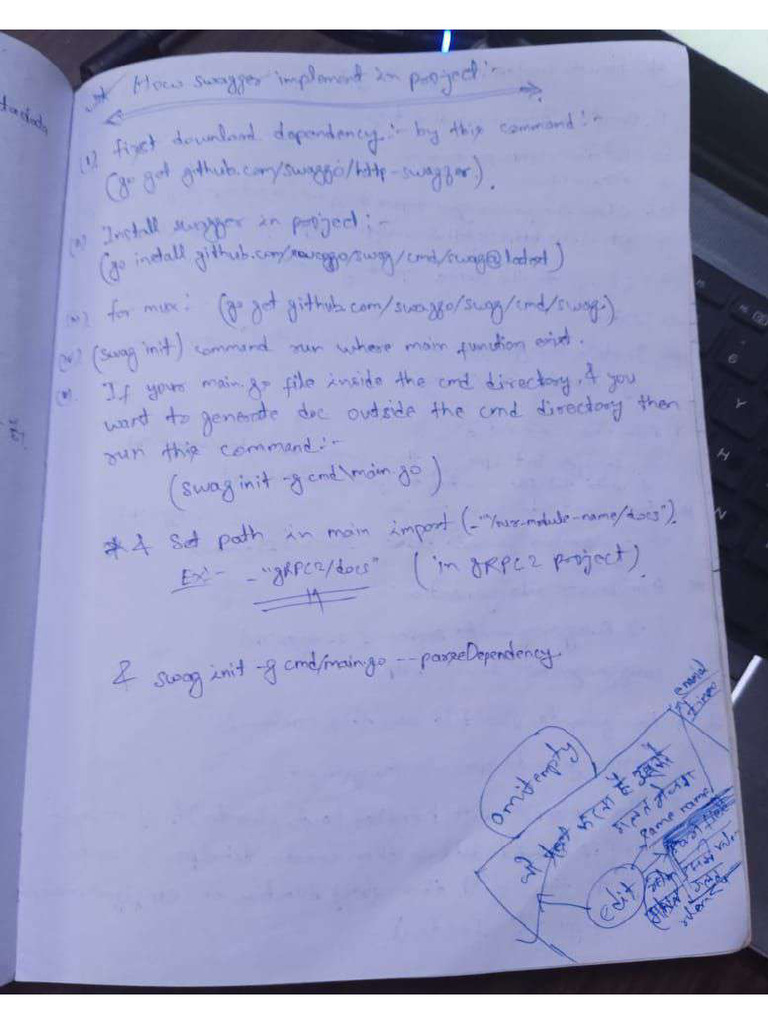 How swagger implement in project :-
(1) first download dependency :- by this command :-
(go get github.com/swaggo/http-swagger).
Install swagger in project :-
(go install github.com/swaggo/swag/cmd/swag@latest)
for mux: (go get github.com/swaggo/swag/cmd/swag)
(swag init) command run where main function exist.
If your main.go file inside the cmd directory, & you
want to generate doc outside the cmd directory then
run this command :-
(swag init -g cmd\main.go)
* & Set path in main import (_"/-module-name/docs").
Ex:- _"gRPC2/docs" (in gRPC2 project)
& swag init -g cmd/main.go --parseDependency
omitempty
same name
edit